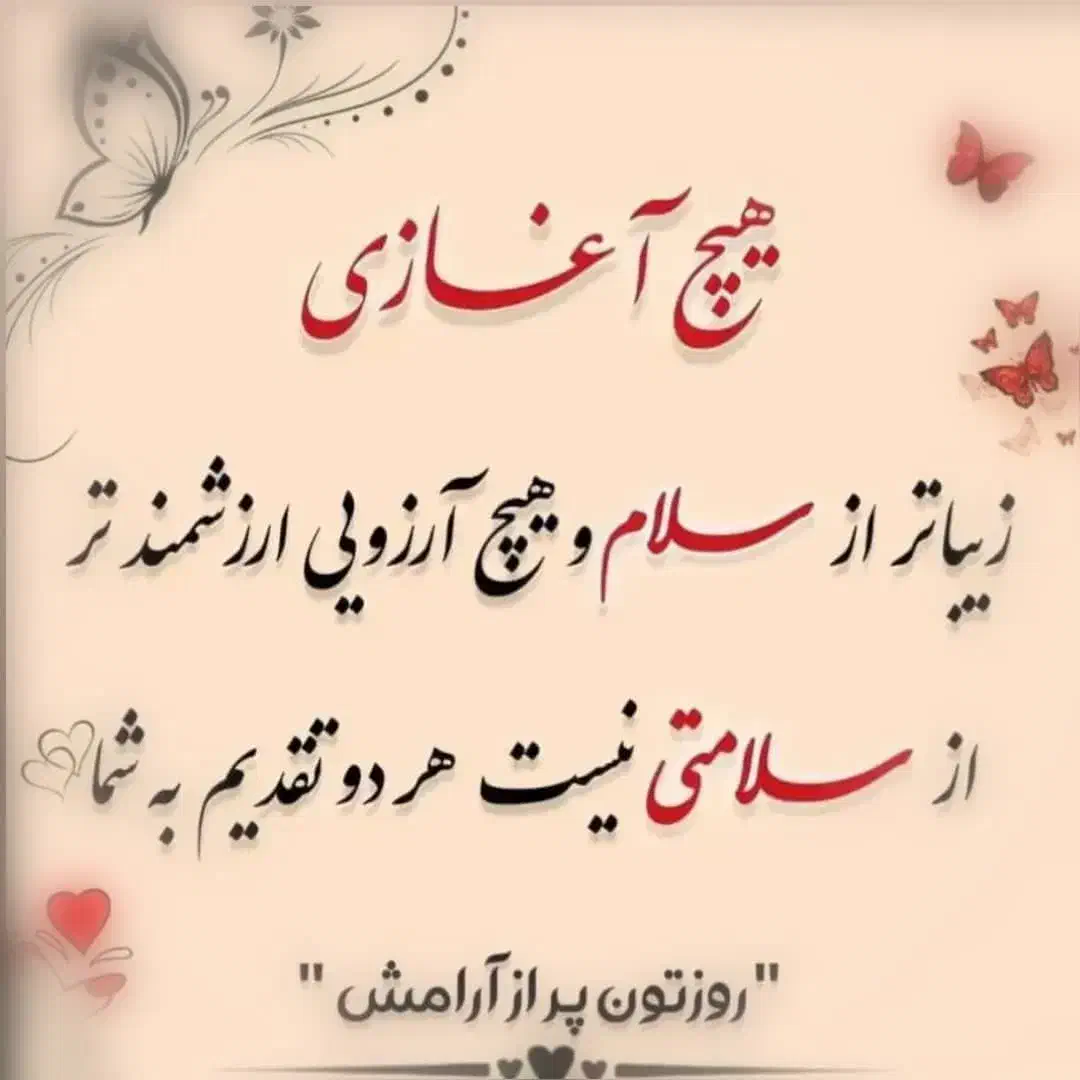 هیچ آغازی
زیباتر از سلام و هیچ آرزویی ارزشمند تر
از سلامتی نیست هر دو تقدیم به شما
"روزتون پر از آرامش"